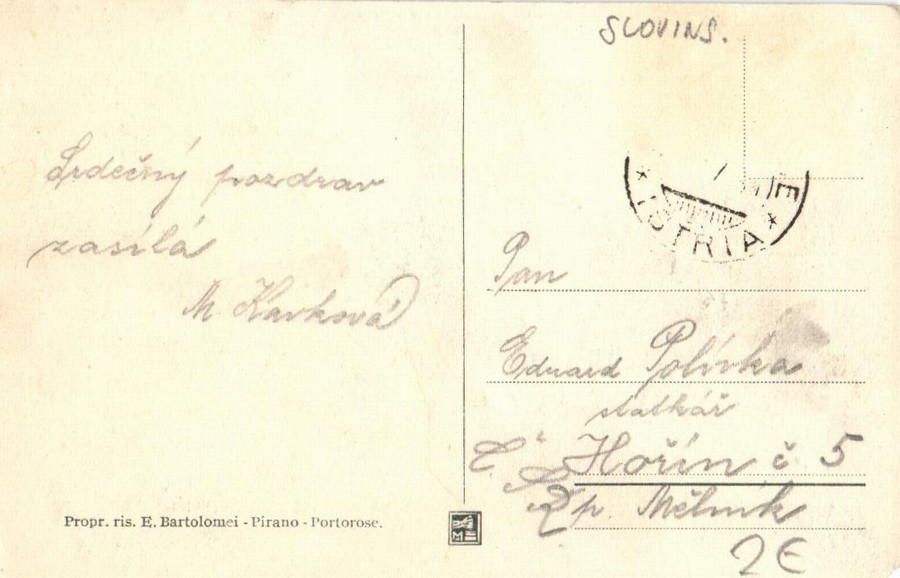 Srdečný pozdrav
zasílá
M. Kavková
Propr. ris. E. Bartolomei - Pirano - Portorose.
SLOVINS.
* ISTRIA *
Pan
Eduard Polívka
statkář
Hořín č 5
p. Mělník
2€